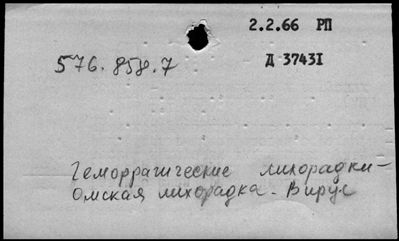 2.2.66 РП
576.858.7
Д 37431
Геморрагические лихорадки –
Омская лихорадка - Вирус